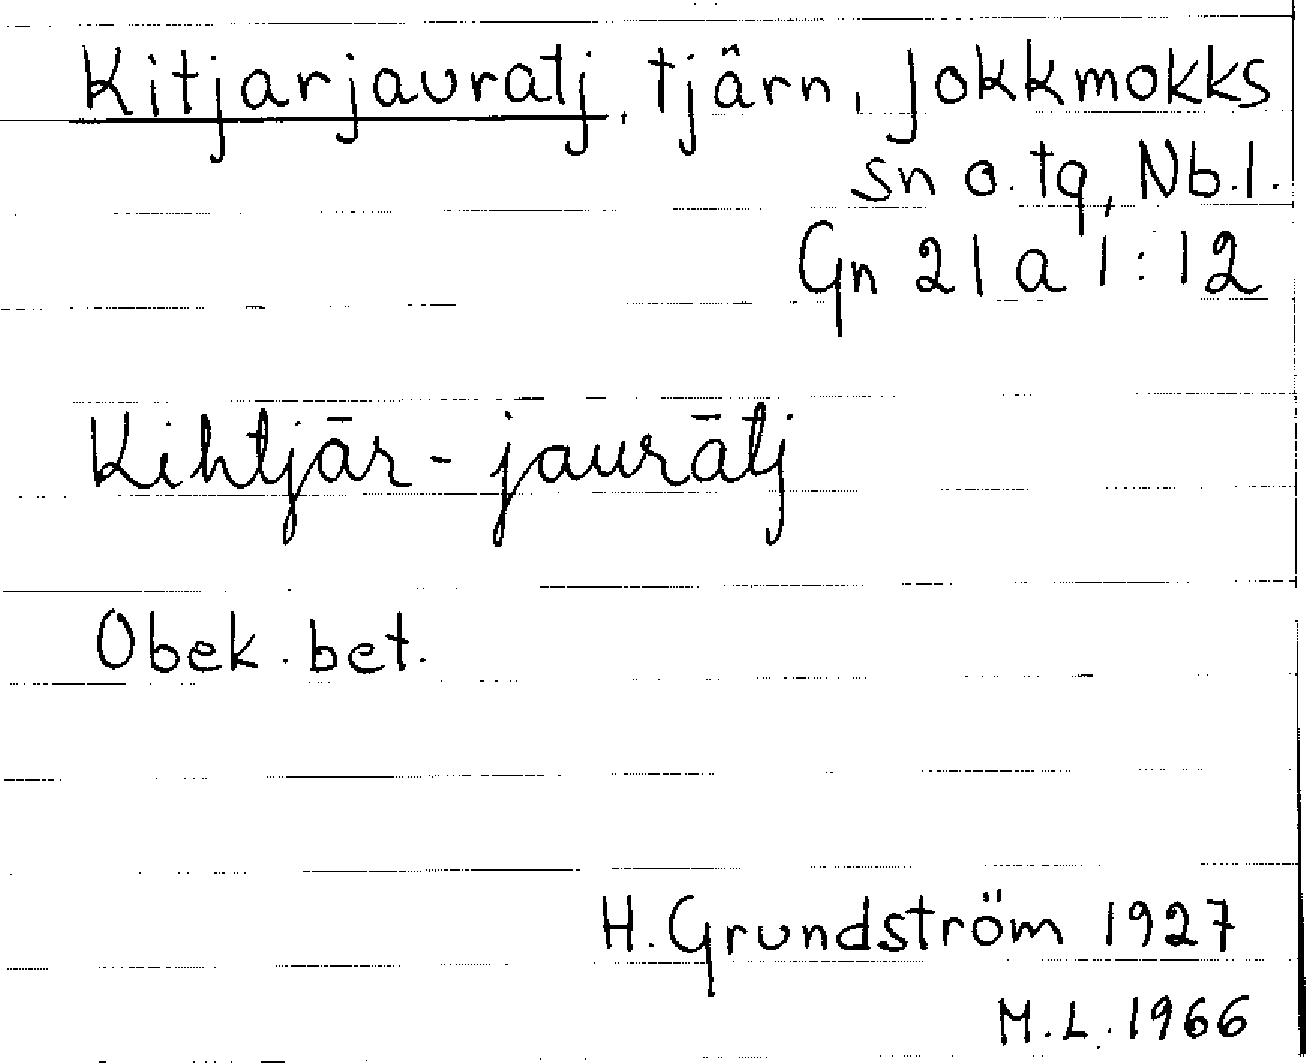 Kitjarjauratj, tjärn, Jokkmokks
sn o. tg, Nb.l.
Gn 21 a 1:12
Kihtjār-jaurātj
Obek. bet.
H. Grundström 1927
M.L. 1966